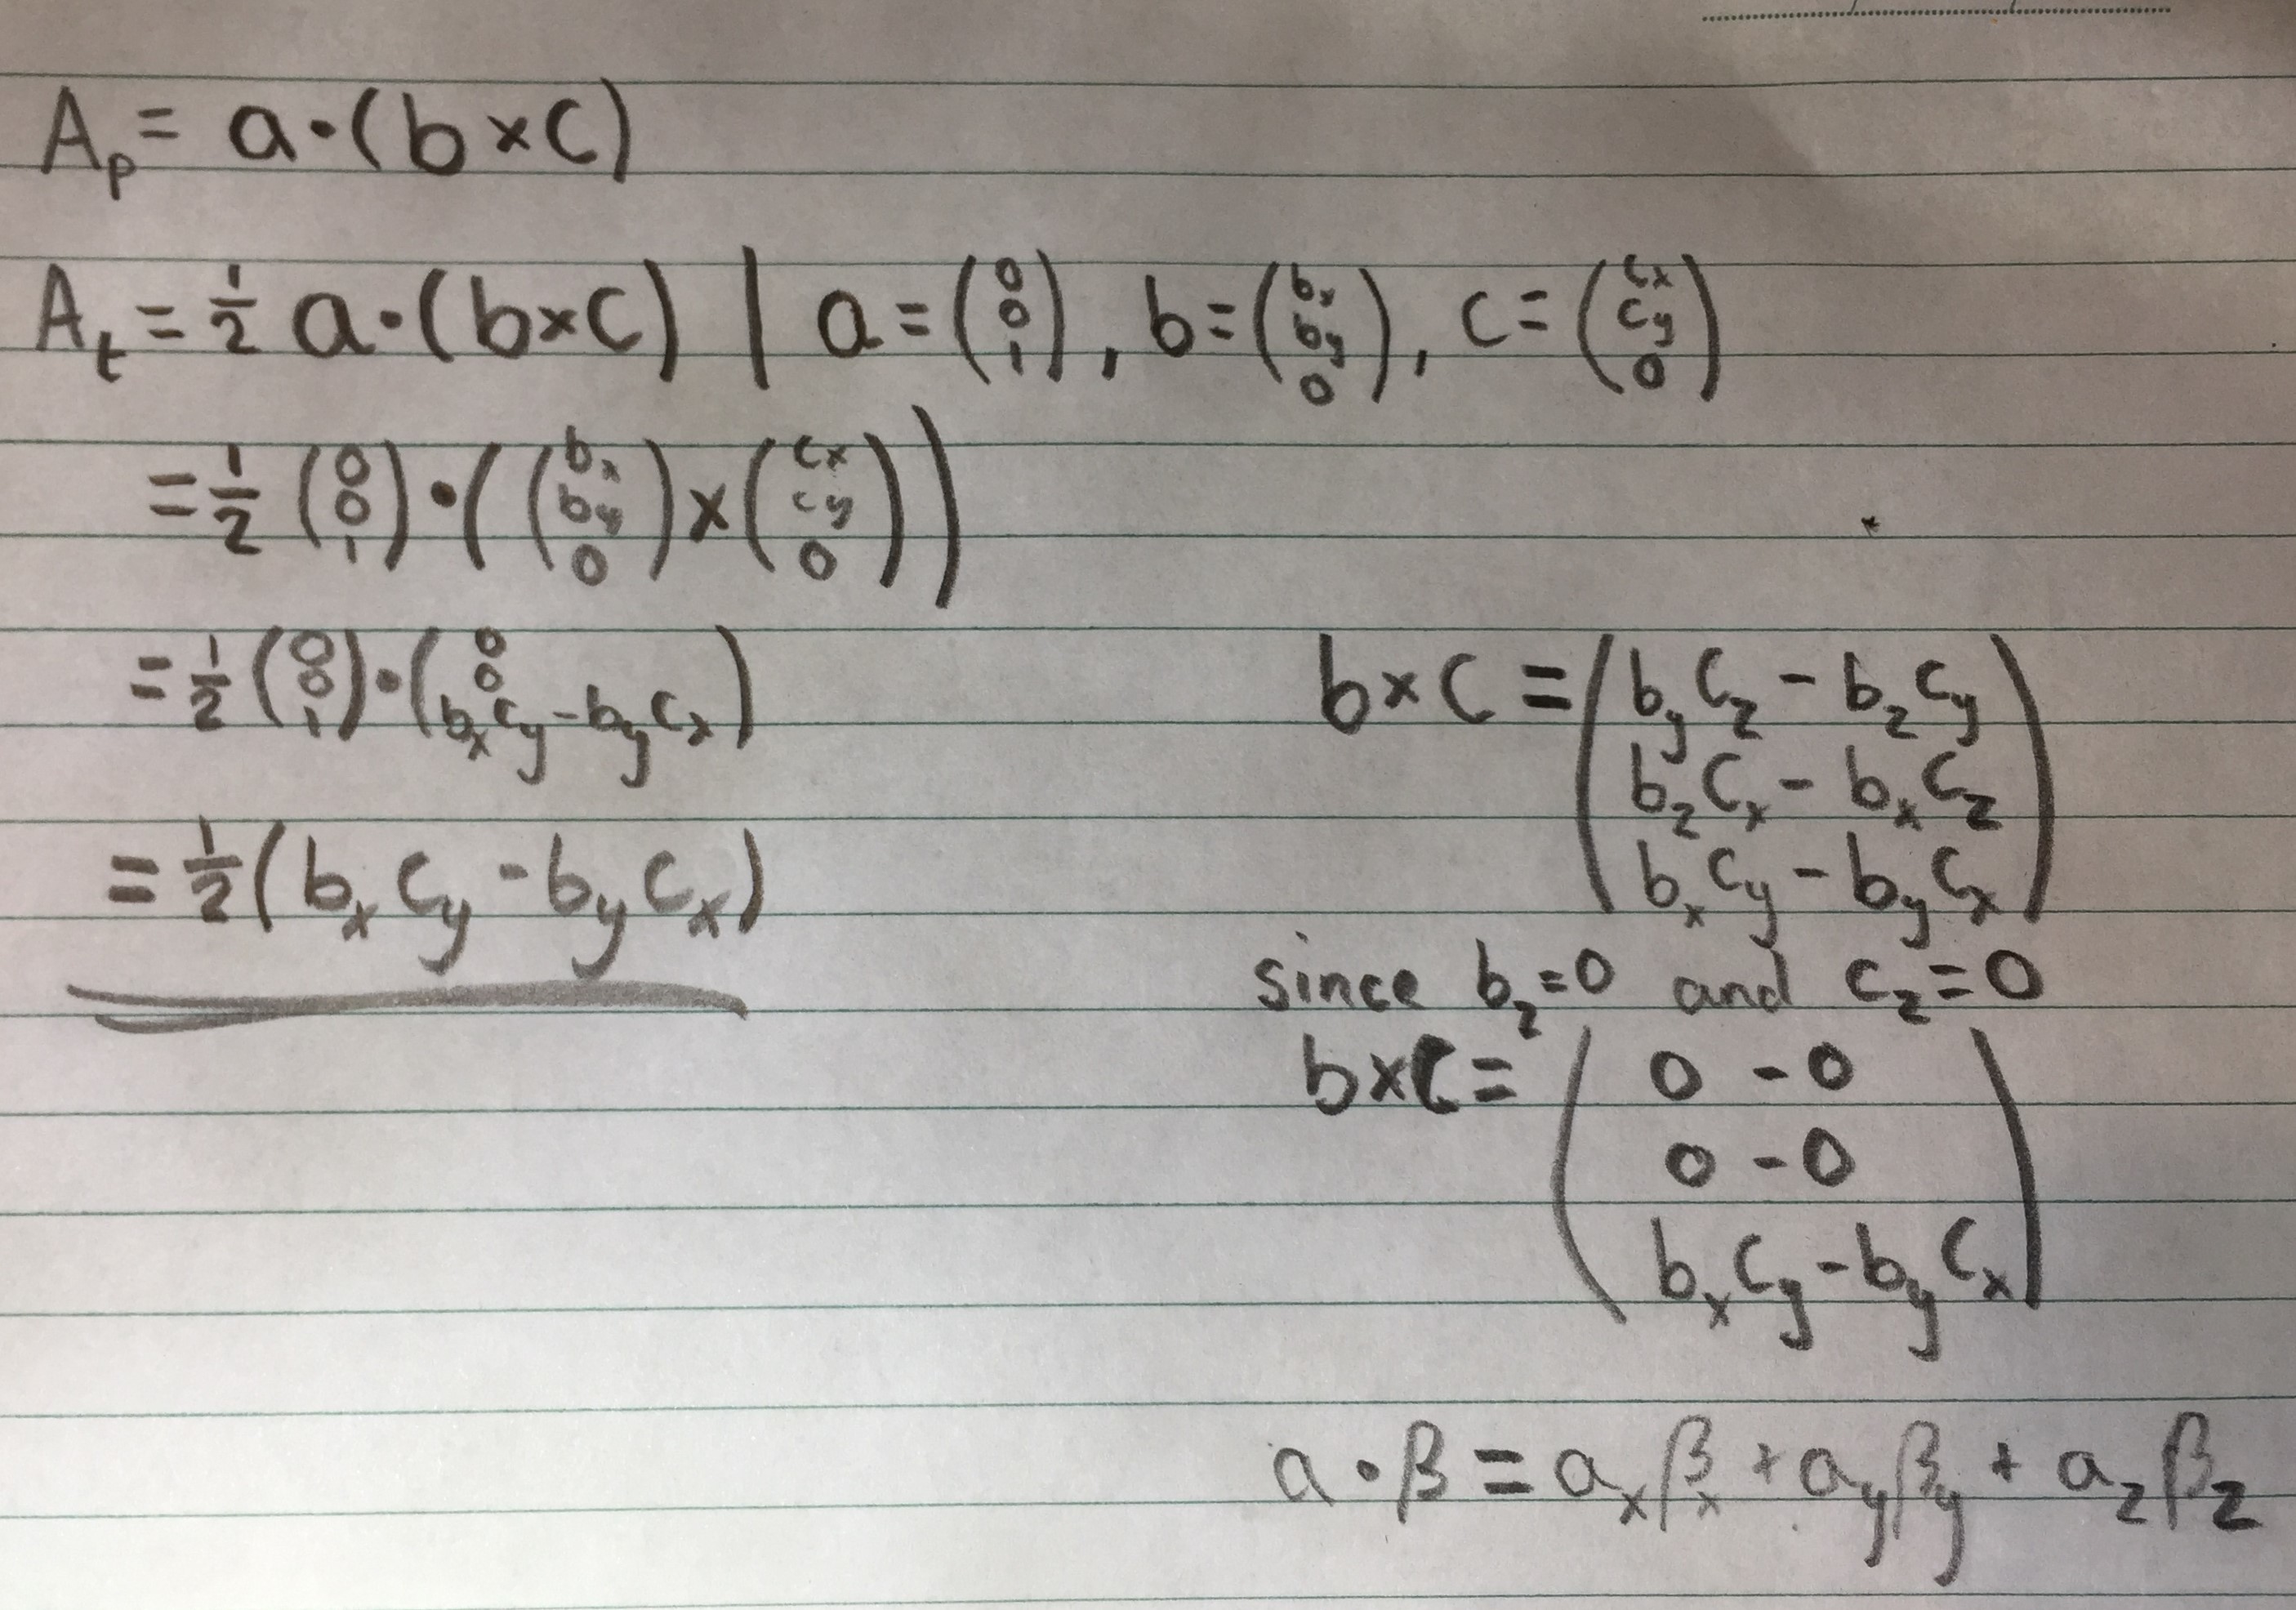 A_p = a·(b×c)
A_t = 1/2 a·(b×c) | a = (0 0 1), b = (b_x b_y 0), c = (c_x c_y 0)
= 1/2 (0 0 1)·((b_x b_y 0)×(c_x c_y 0))
= 1/2 (0 0 1)·(0 0 b_x c_y - b_y c_x)
= 1/2 (b_x c_y - b_y c_x)
b×c = (b_y c_z - b_z c_y
b_z c_x - b_x c_z
b_x c_y - b_y c_x)
since b_z=0 and c_z=0
b×c = (0 - 0
0 - 0
b_x c_y - b_y c_x)
a·β = a_x β_x + a_y β_y + a_z β_z